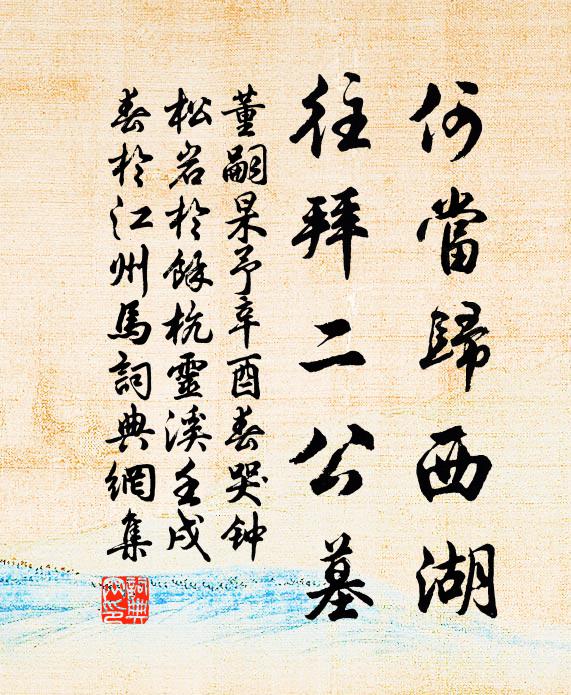 何當歸西湖
往拜二公墓
董嗣杲予辛酉春哭钟
松岩於餘杭靈溪壬戌
春於江州馬詞典網集